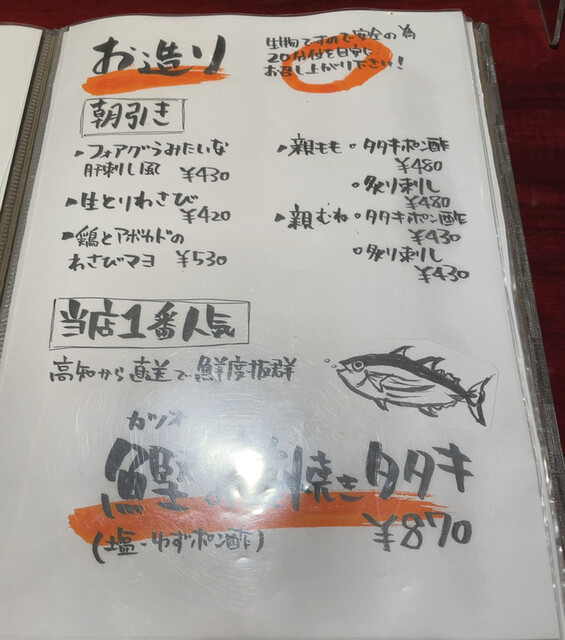 お造り
生物ですので安全の為
20分付を目安に
お召し上がり下さい!
朝引き
・フォアグラみたいな
肝刺し風 ¥430
・生とりわさび
¥420
・鶏とアボカドの
わさびマヨ ¥530
・親もも・タタキポン酢
¥480
・炙り刺し
¥480
・親むね・タタキポン酢
¥430
・炙り刺し
¥430
当店1番人気
高知から直送で鮮度抜群
カツオ
鰹の 焼きタタキ
¥870
(塩・ゆずポン酢)